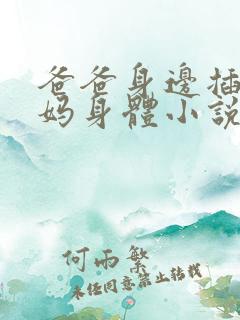 爸爸身邊插
妈身體小說
何雨繁
未经同意禁止转载